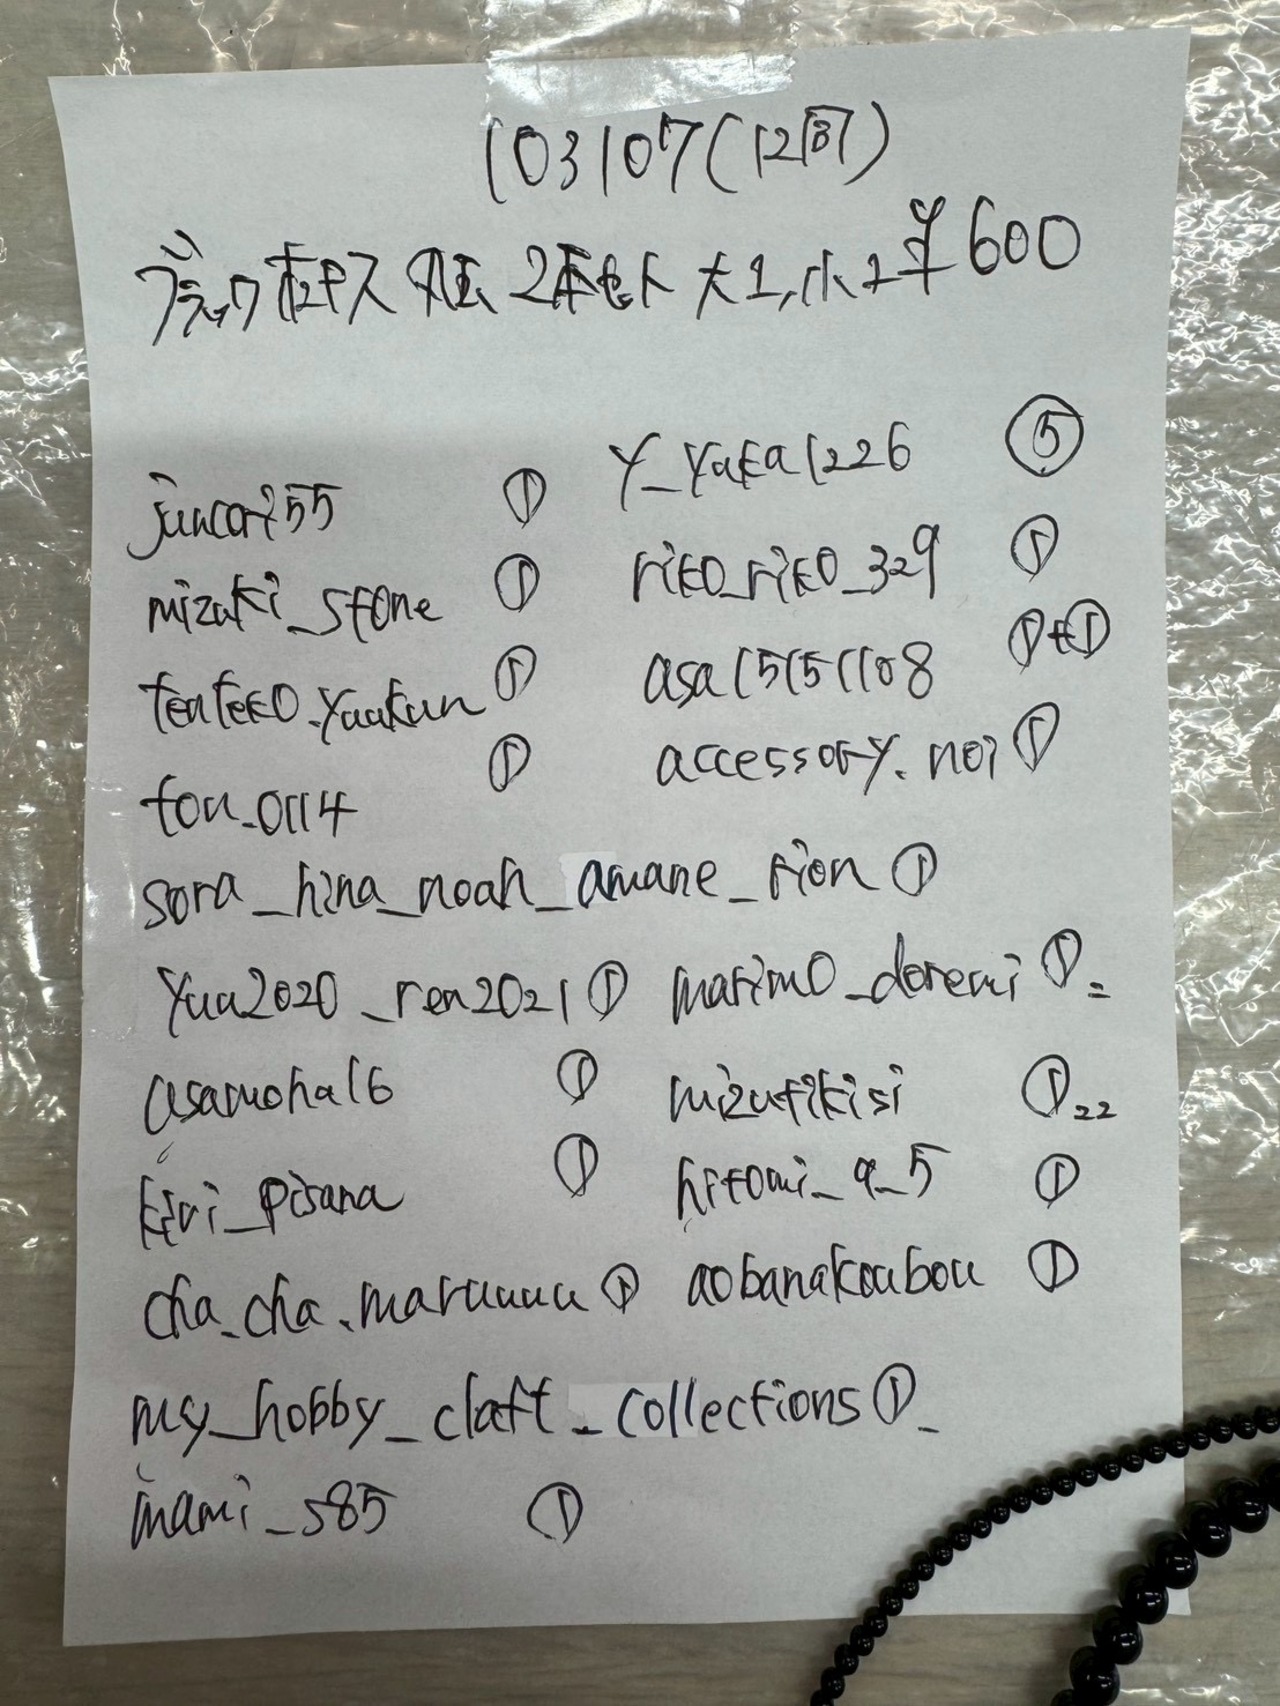 103107(12間)
ブラックオキス 丸玉 2本セット 大1,小1 ¥600
juncori55 ①
y_yuka1226 ⑤
mizuki_stone ①
riko_riko_329 ①
tenteko.yuukun ①
asa15151108 ①+①
tou_0114 ①
accessory.noi ①
sora_hina_noah_amane_rion ①
yuu2020_ren2021 ①
marimo_doremi ①=
asamoha16 ①
mizutikisi ①22
kiri_pisana ①
hitomi_9_5 ①
cha_cha.maruuuu ①
aobanakoubou ①
my_hobby_claft_collections ①_
inami_s85 ①